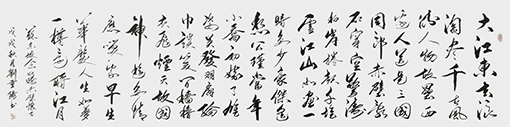 大江東去浪
淘盡千古風
流人物故壘西
邊人道是三國
周郎赤壁亂
石穿空驚濤
拍岸捲起千堆
雪江山如畫一
時多少豪傑遙
想公瑾當年
小喬初嫁了雄
姿英發羽扇綸
巾談笑間檣櫓
灰飛煙滅故國
神遊多情
應笑我早生
華髮人生如夢
一樽還酹江月
蘇東坡念奴嬌赤壁懷古
戊戌秋月劉書